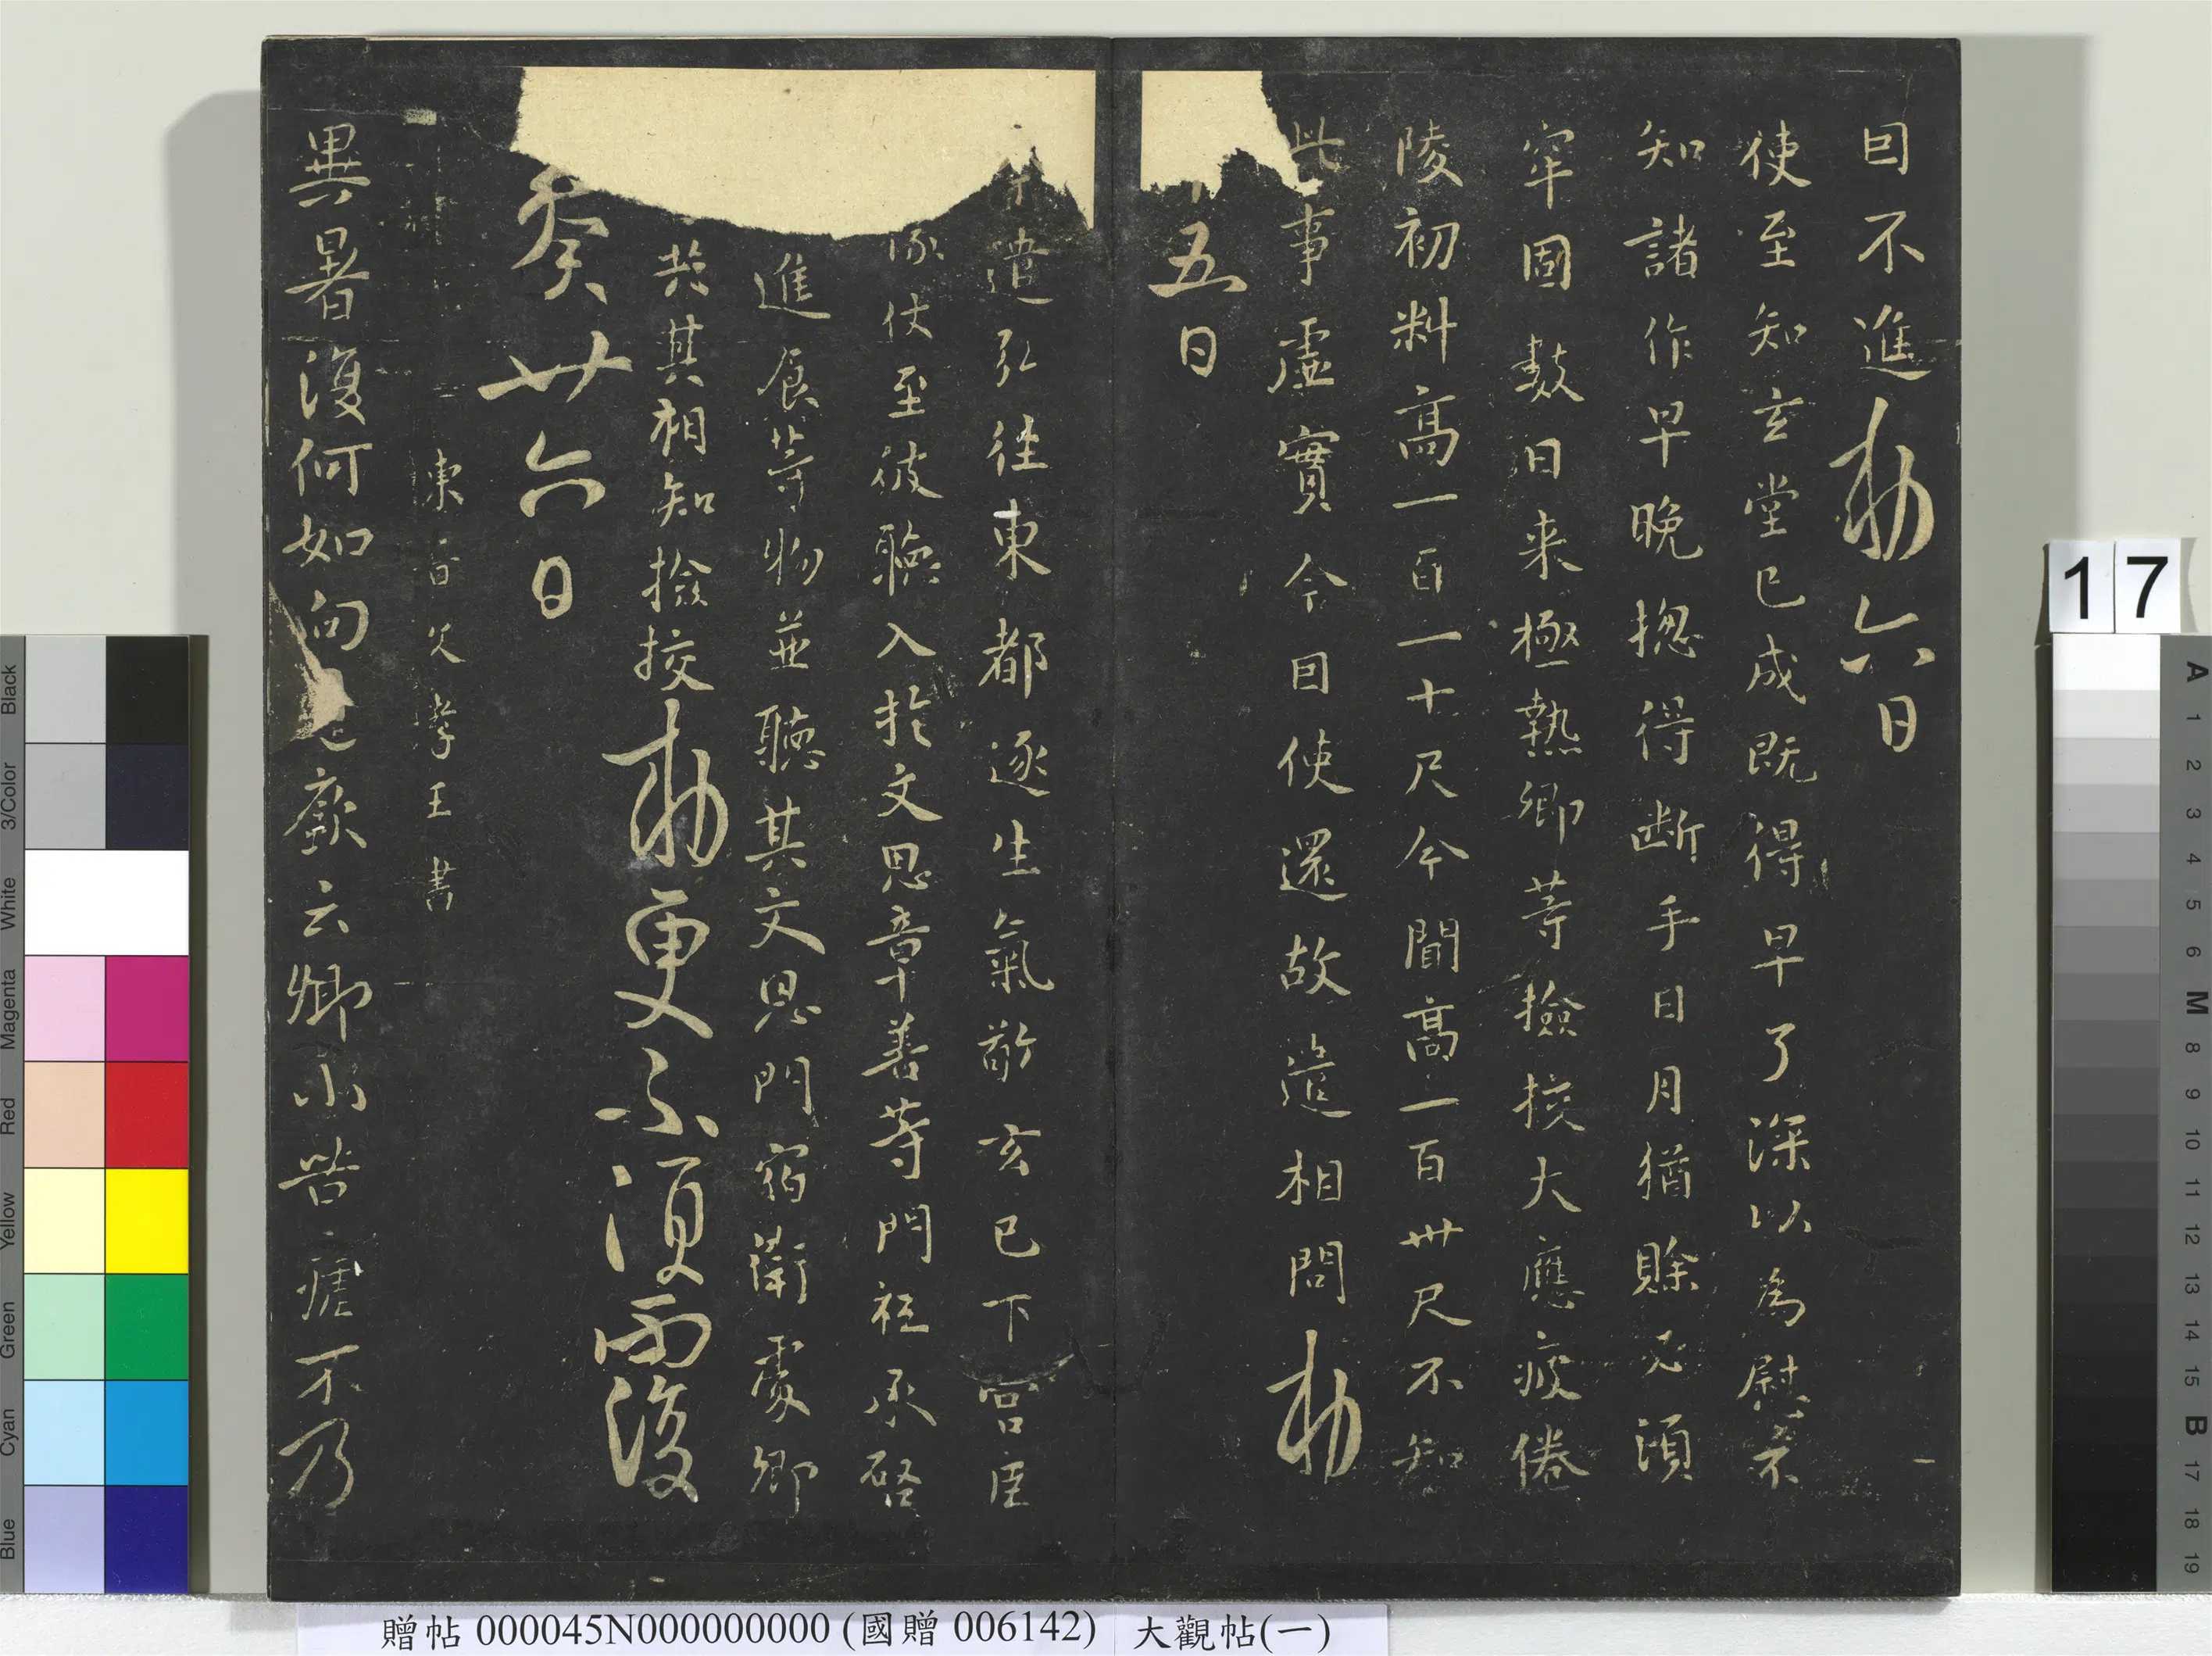 囙不進勅六日
使至知玄堂已成既得早了深以為慰不
知諸作早晚揔得断手日月猶賖必須
牢固數日来極熱卿等撿挍大應疲倦
陵初料高一百一十尺今聞高一百卌尺不知
此事虚實今囙使還故遣相問勅
五日
遣弘往東都逐生氣敬玄已下宮臣
仗至彼聽入於文思章善等門祗承啓
進食等物並聽其文思門宿衛處卿
共其相知撿挍勅更不須雨後
癸卅六日
東晉文孝王書
異暑復何如向
歡云卿小皆瘧不乃
贈帖 000045N000000000 (國贈 006142) 大觀帖(一)
17
Black
3/Color
White
Magenta
Red
Yellow
Green
Cyan
Blue
A 1 2 3 4 5 6 M 8 9 10 11 12 13 14 15 B 17 18 19